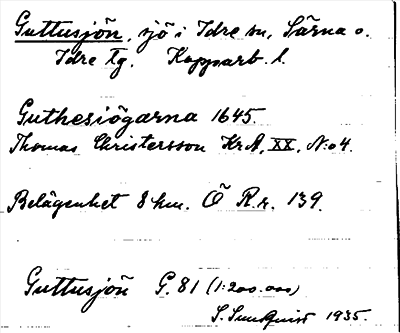 Guttusjön, sjö i Idre sn, Särna o.
Idre tg. Kopparb. l.
Guthesiögarna 1645.
Thomas Christersson KrA, XX, N:o 4.
Belägenhet 8 km. Ö R.r. 139.
Guttusjön G. 81 (1:200.000)
S. Sundquist 1935.